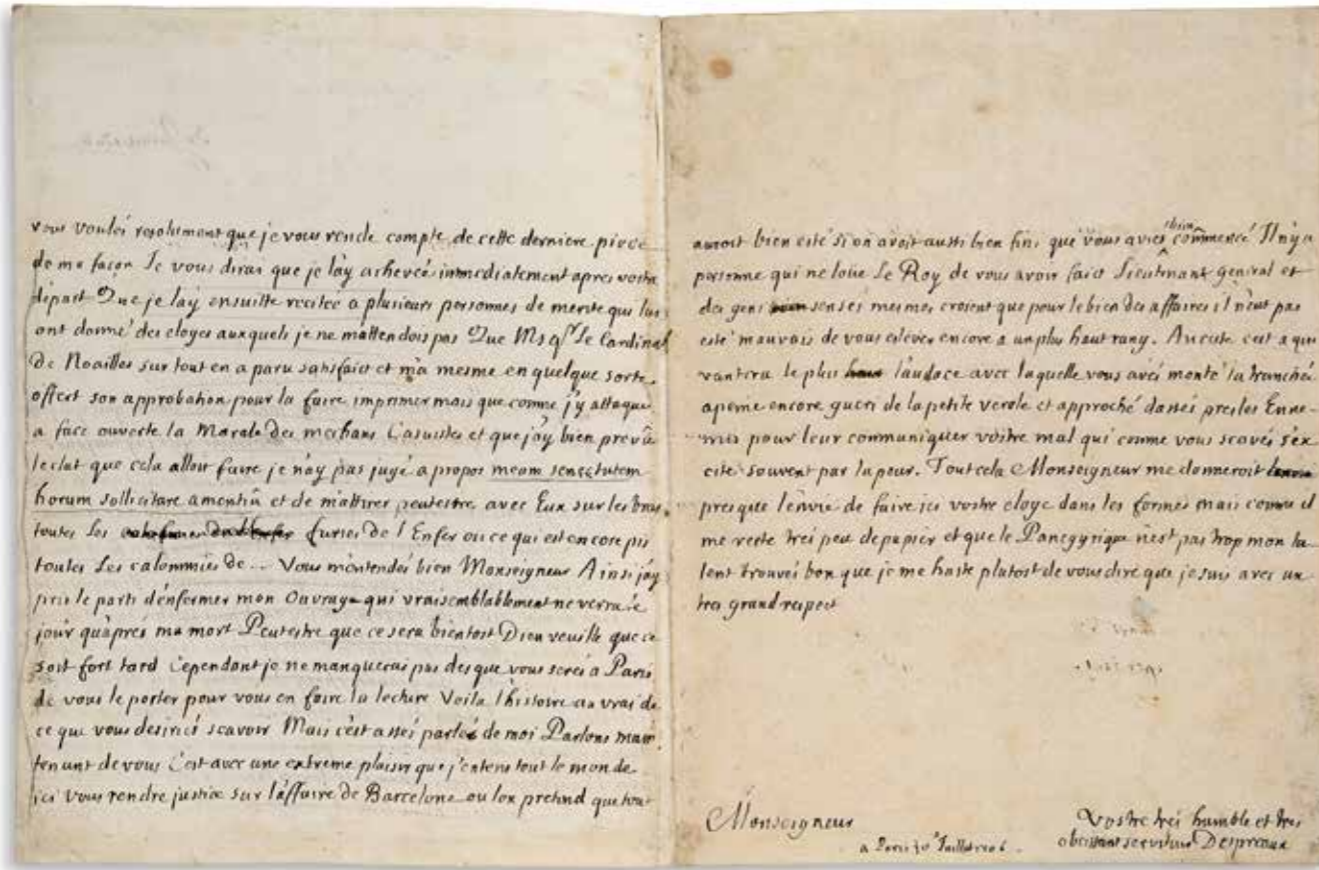 vous voulés resolument que je vous rende compte de cette derniere piece
de ma façon Je vous dirai que je l'ay achevée immediatement apres vostre
départ Que je lay ensuitte recitée a plusieurs personnes de merite qui lui
ont donné des eloges auxquels je ne m'attendois pas Que Msgr Le Cardinal
De Noailles sur tout en a paru satisfaict et m'a mesme en quelque sorte
offert son approbation pour la faire imprimer mais que comme j'y attaque
a face ouverte la Morale des meschans Casuistes et que j'ay bien preveû
leclat que cela alloit faire je n'ay pas jugé a propos meam senectutem
horum sollicitare amentiâ et de m'attirer peutestre avec Eux sur les bras
toutes Les furies de l'Enfer ou ce qui est encore pis
toutes Les calomnies de... Vous m'entendés bien Monseigneur Ainsi j'ay
pris le parti d'enfermer mon Ouvrage qui vraisemblablement ne verra le
jour qu'aprés ma mort Peutestre que ce sera bientost Dieu veuille que ce
soit fort tard Cependant je ne manquerai pas des que vous serés a Paris
de vous le porter pour vous en faire la lecture Voila l'histoire au vrai de
ce que vous desiriés scavoir Mais c'est assés parlé de moi Parlons main
tenant de vous C'est avec une extreme plaisir que j'entens tout le monde
ici vous rendre justice sur l'affaire de Barcelone ou lon pretend que tout
auroit bien esté si on avoit aussi bien fini que vous aviés bien commencé Il n'y a
personne qui ne loüe Le Roy de vous avoir faict Lieutenant general et
des gens sensés mesmes croient que pour le bien des affaires il n'eut pas
esté mauvais de vous eslever encore a un plus haut rang. Au reste c'est a qui
vantera le plus l'audace avec laquelle vous avés monté la tranchée
apeine encore gueri de la petite verole et approché dassés pres les Enne-
mis pour leur communiquer vostre mal qui comme vous scavés s'ex
cite souvent par la peur. Tout cela Monseigneur me donneroit
presque l'envie de faire ici vostre eloge dans les formes mais comme il
me reste trés peu de papier et que le Panegyrique n'est pas trop mon ta
lent trouvés bon que je me haste plutost de vous dire que je suis avec un
tres grand respect
Monseigneur
Vostre trés humble et tres
obeissant serviteur Despreaux
a Paris